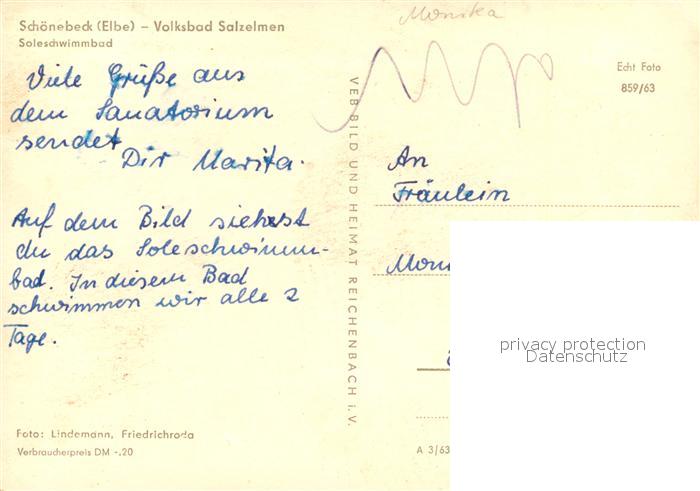 Schönebeck (Elbe) – Volksbad Salzelmen
Soleschwimmbad
Viele Grüße aus
dem Sanatorium
sendet
Dir Marita.
Auf dem Bild siehst
du das Soleschwimm-
bad. In diesem Bad
schwimmen wir alle 2
Tage.
Foto: Lindemann, Friedrichroda
Verbraucherpreis DM -.20
VEB BILD UND HEIMAT REICHENBACH i. V.
Monika
Echt Foto
859/63
An
Fräulein
Moni
A 3/63
privacy protection
Datenschutz